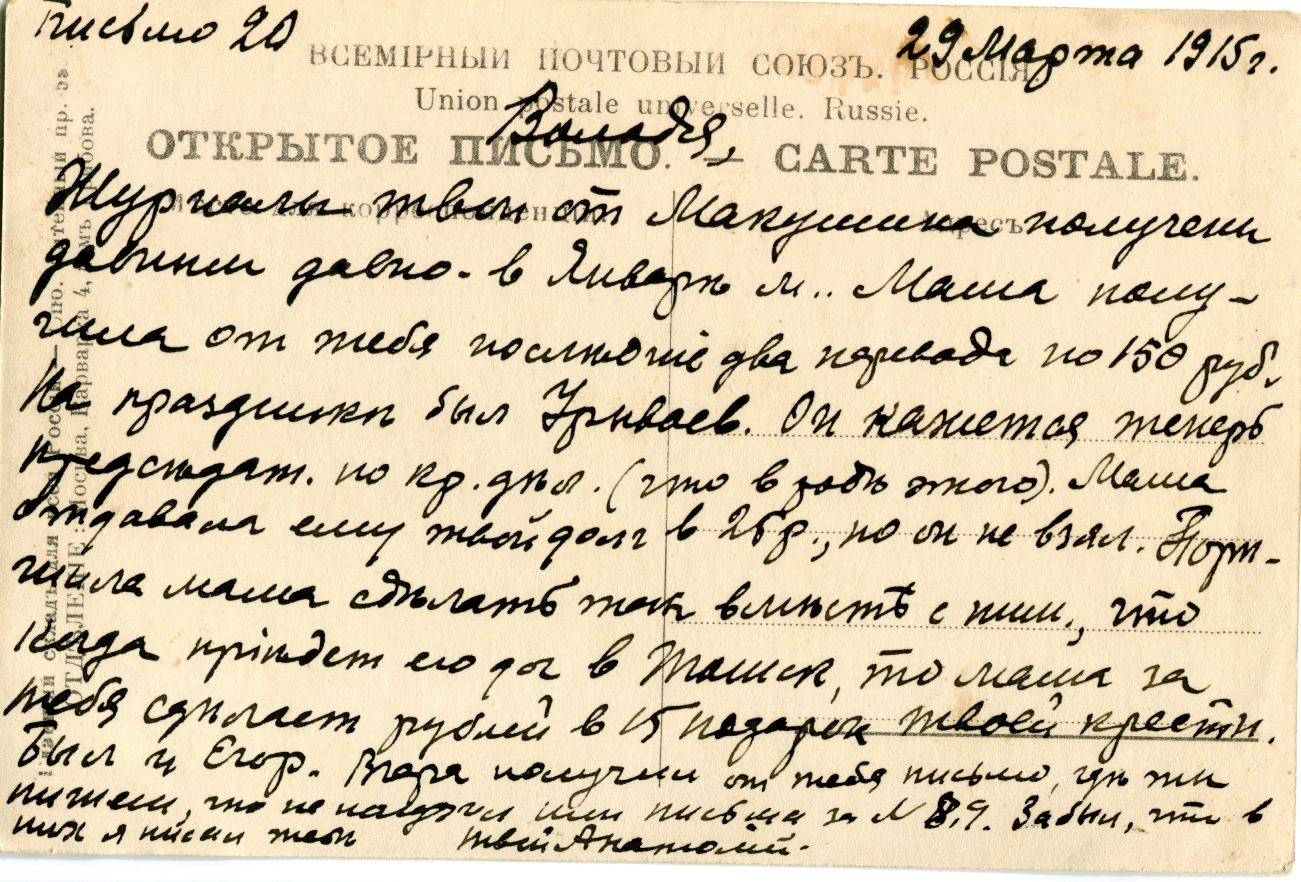 Письмо 20
29 Марта 1915 г.
ВСЕМІРНЫЙ ПОЧТОВЫЙ СОЮЗЪ. РОССІЯ.
Union postale universelle. Russie.
ОТКРЫТОЕ ПИСЬМО. — CARTE POSTALE.
Володя,
Журналы твои от Макушина получены
давным давно - в Январѣ м.. Маша полу-
чила от тебя послѣдніе два перевода по 150 руб.
На праздники был Урываев. Он кажется теперь
предсѣдат. по кр. дѣл. (что в родѣ этого). Маша
отдавала ему твой долг в 25 р., но он не взял. Порѣ-
шила маша сдѣлать так вмѣстѣ с ним, что
когда пріѣдет его в Томск, то маша за
тебя сдѣлает рублей в 15 подарок твоей крестн.
Был и Егор. Вчера получили от тебя письмо, гдѣ ты
пишеш, что не получил письма за № 8,9. Забыл, что в
них я писал тебѣ Твой Анатолій.
Адресъ
ОТДѢЛЕНІЕ Москва, Варварка 4,